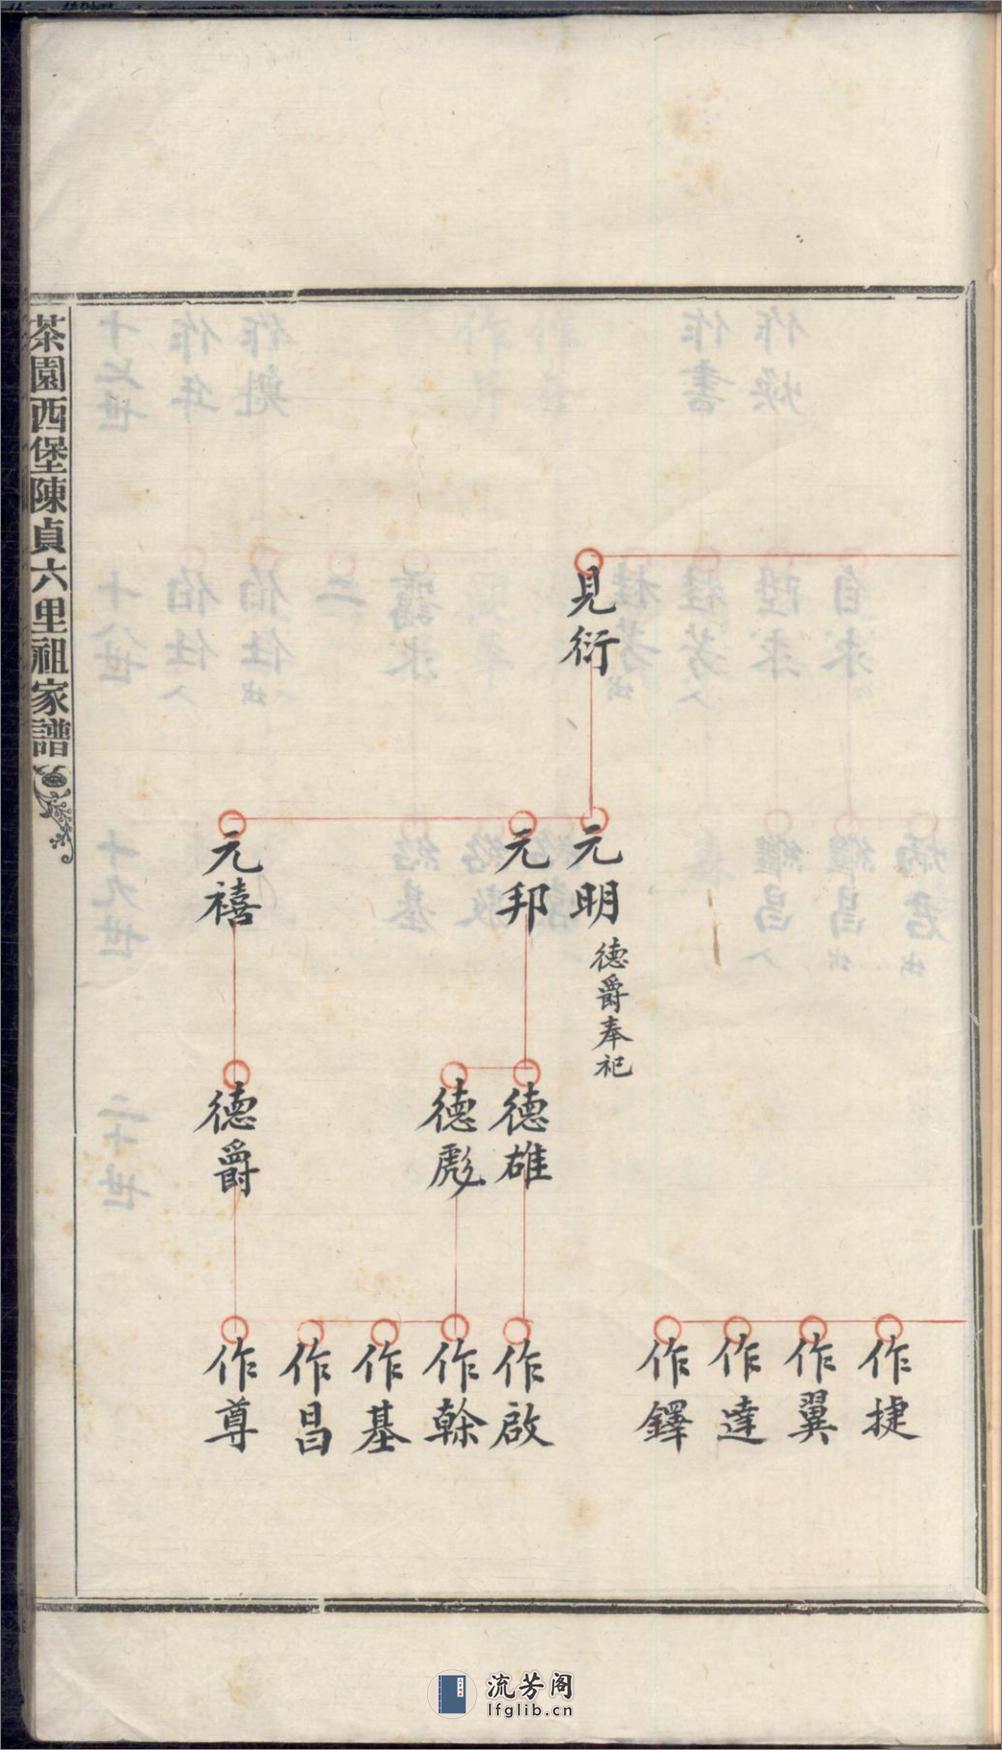 見衍
元明
德爵奉祀
元邦
元禧
德雄
德彪
德爵
作捷
作翼
作達
作鐸
作啟
作榦
作基
作昌
作尊
茶園西堡陳貞六里祖家譜
流芳阁
lfglib.cn